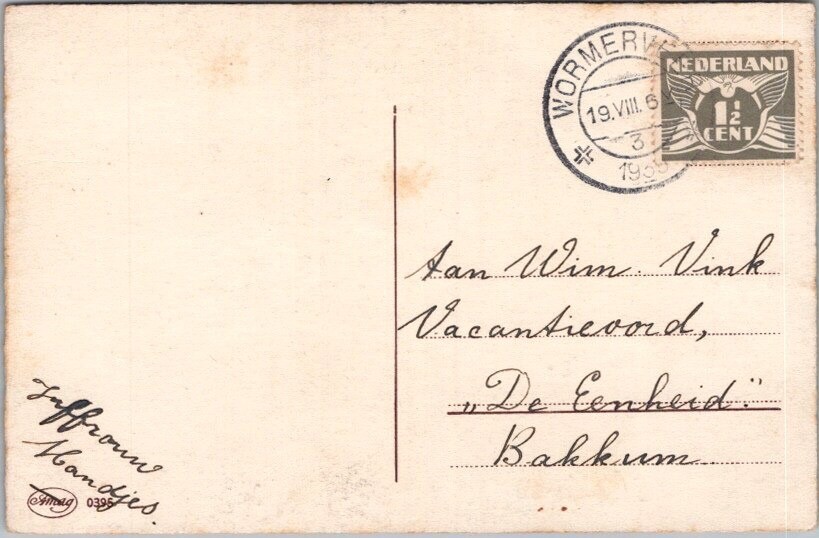 WORMERVE
19.VIII.6
3
193
NEDERLAND
1½
CENT
Aan Wim. Vink
Vacantieoord,
„De Eenheid".
Bakkum.
Juffrouw
Mandjes.
Amag 0396